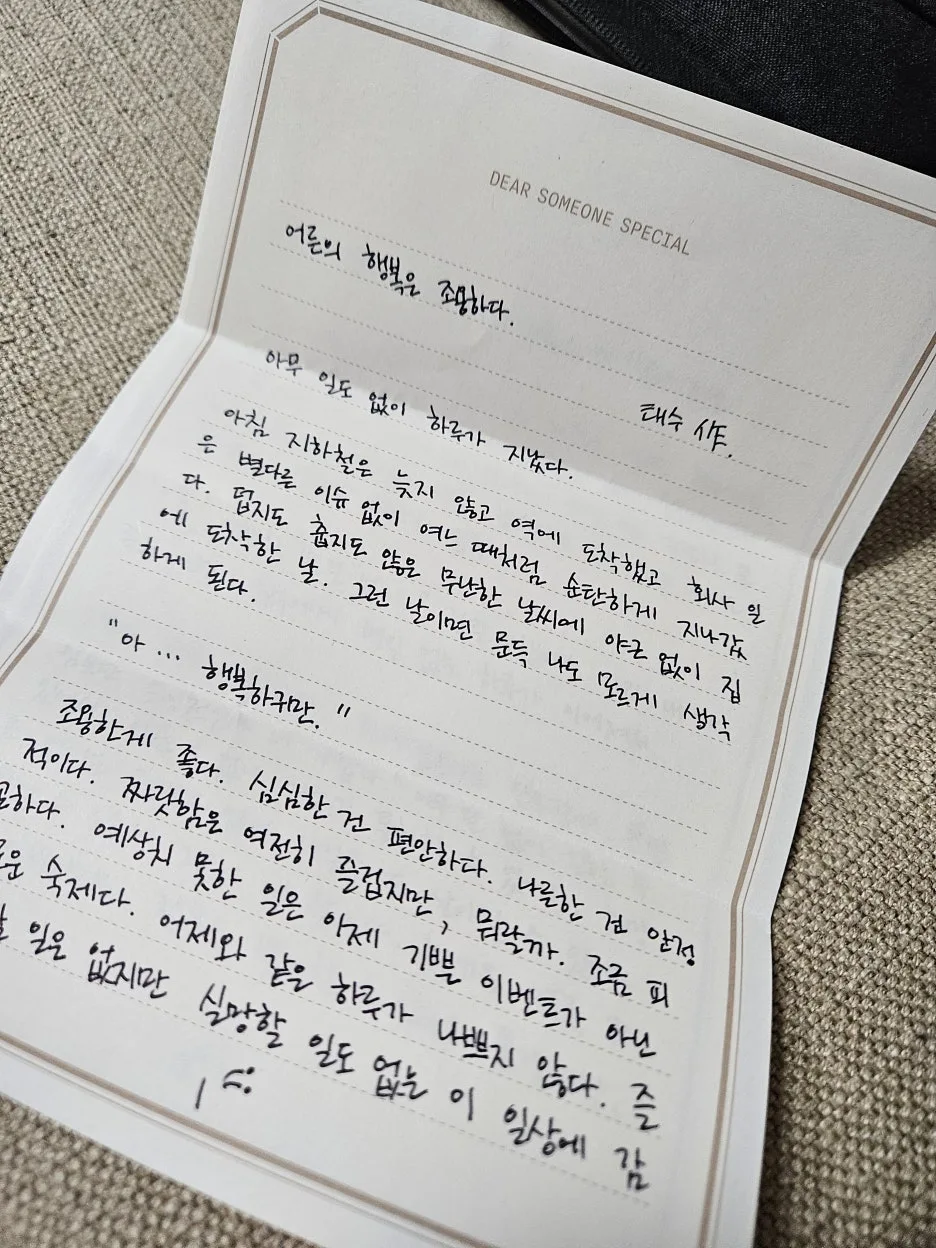 DEAR SOMEONE SPECIAL
어른의 행복은 조용하다.
태수 作.
아무 일도 없이 하루가 지났다.
아침 지하철은 늦지 않고 역에 도착했고 회사 일
은 별다른 이슈 없이 여느 때처럼 순탄하게 지나갔
다. 덥지도 춥지도 않은 무난한 날씨에 야근 없이 집
에 도착한 날. 그런 날이면 문득 나도 모르게 생각
하게 된다.
"아... 행복하구만."
조용한게 좋다. 심심한 건 편안하다. 나른한 건 안정
적이다. 짜릿함은 여전히 즐겁지만, 뭐랄까. 조금 피
곤하다. 예상치 못한 일은 이제 기쁜 이벤트가 아닌
숙제다. 어제와 같은 하루가 나쁘지 않다. 즐
일은 없지만 실망할 일도 없는 이 일상에 감